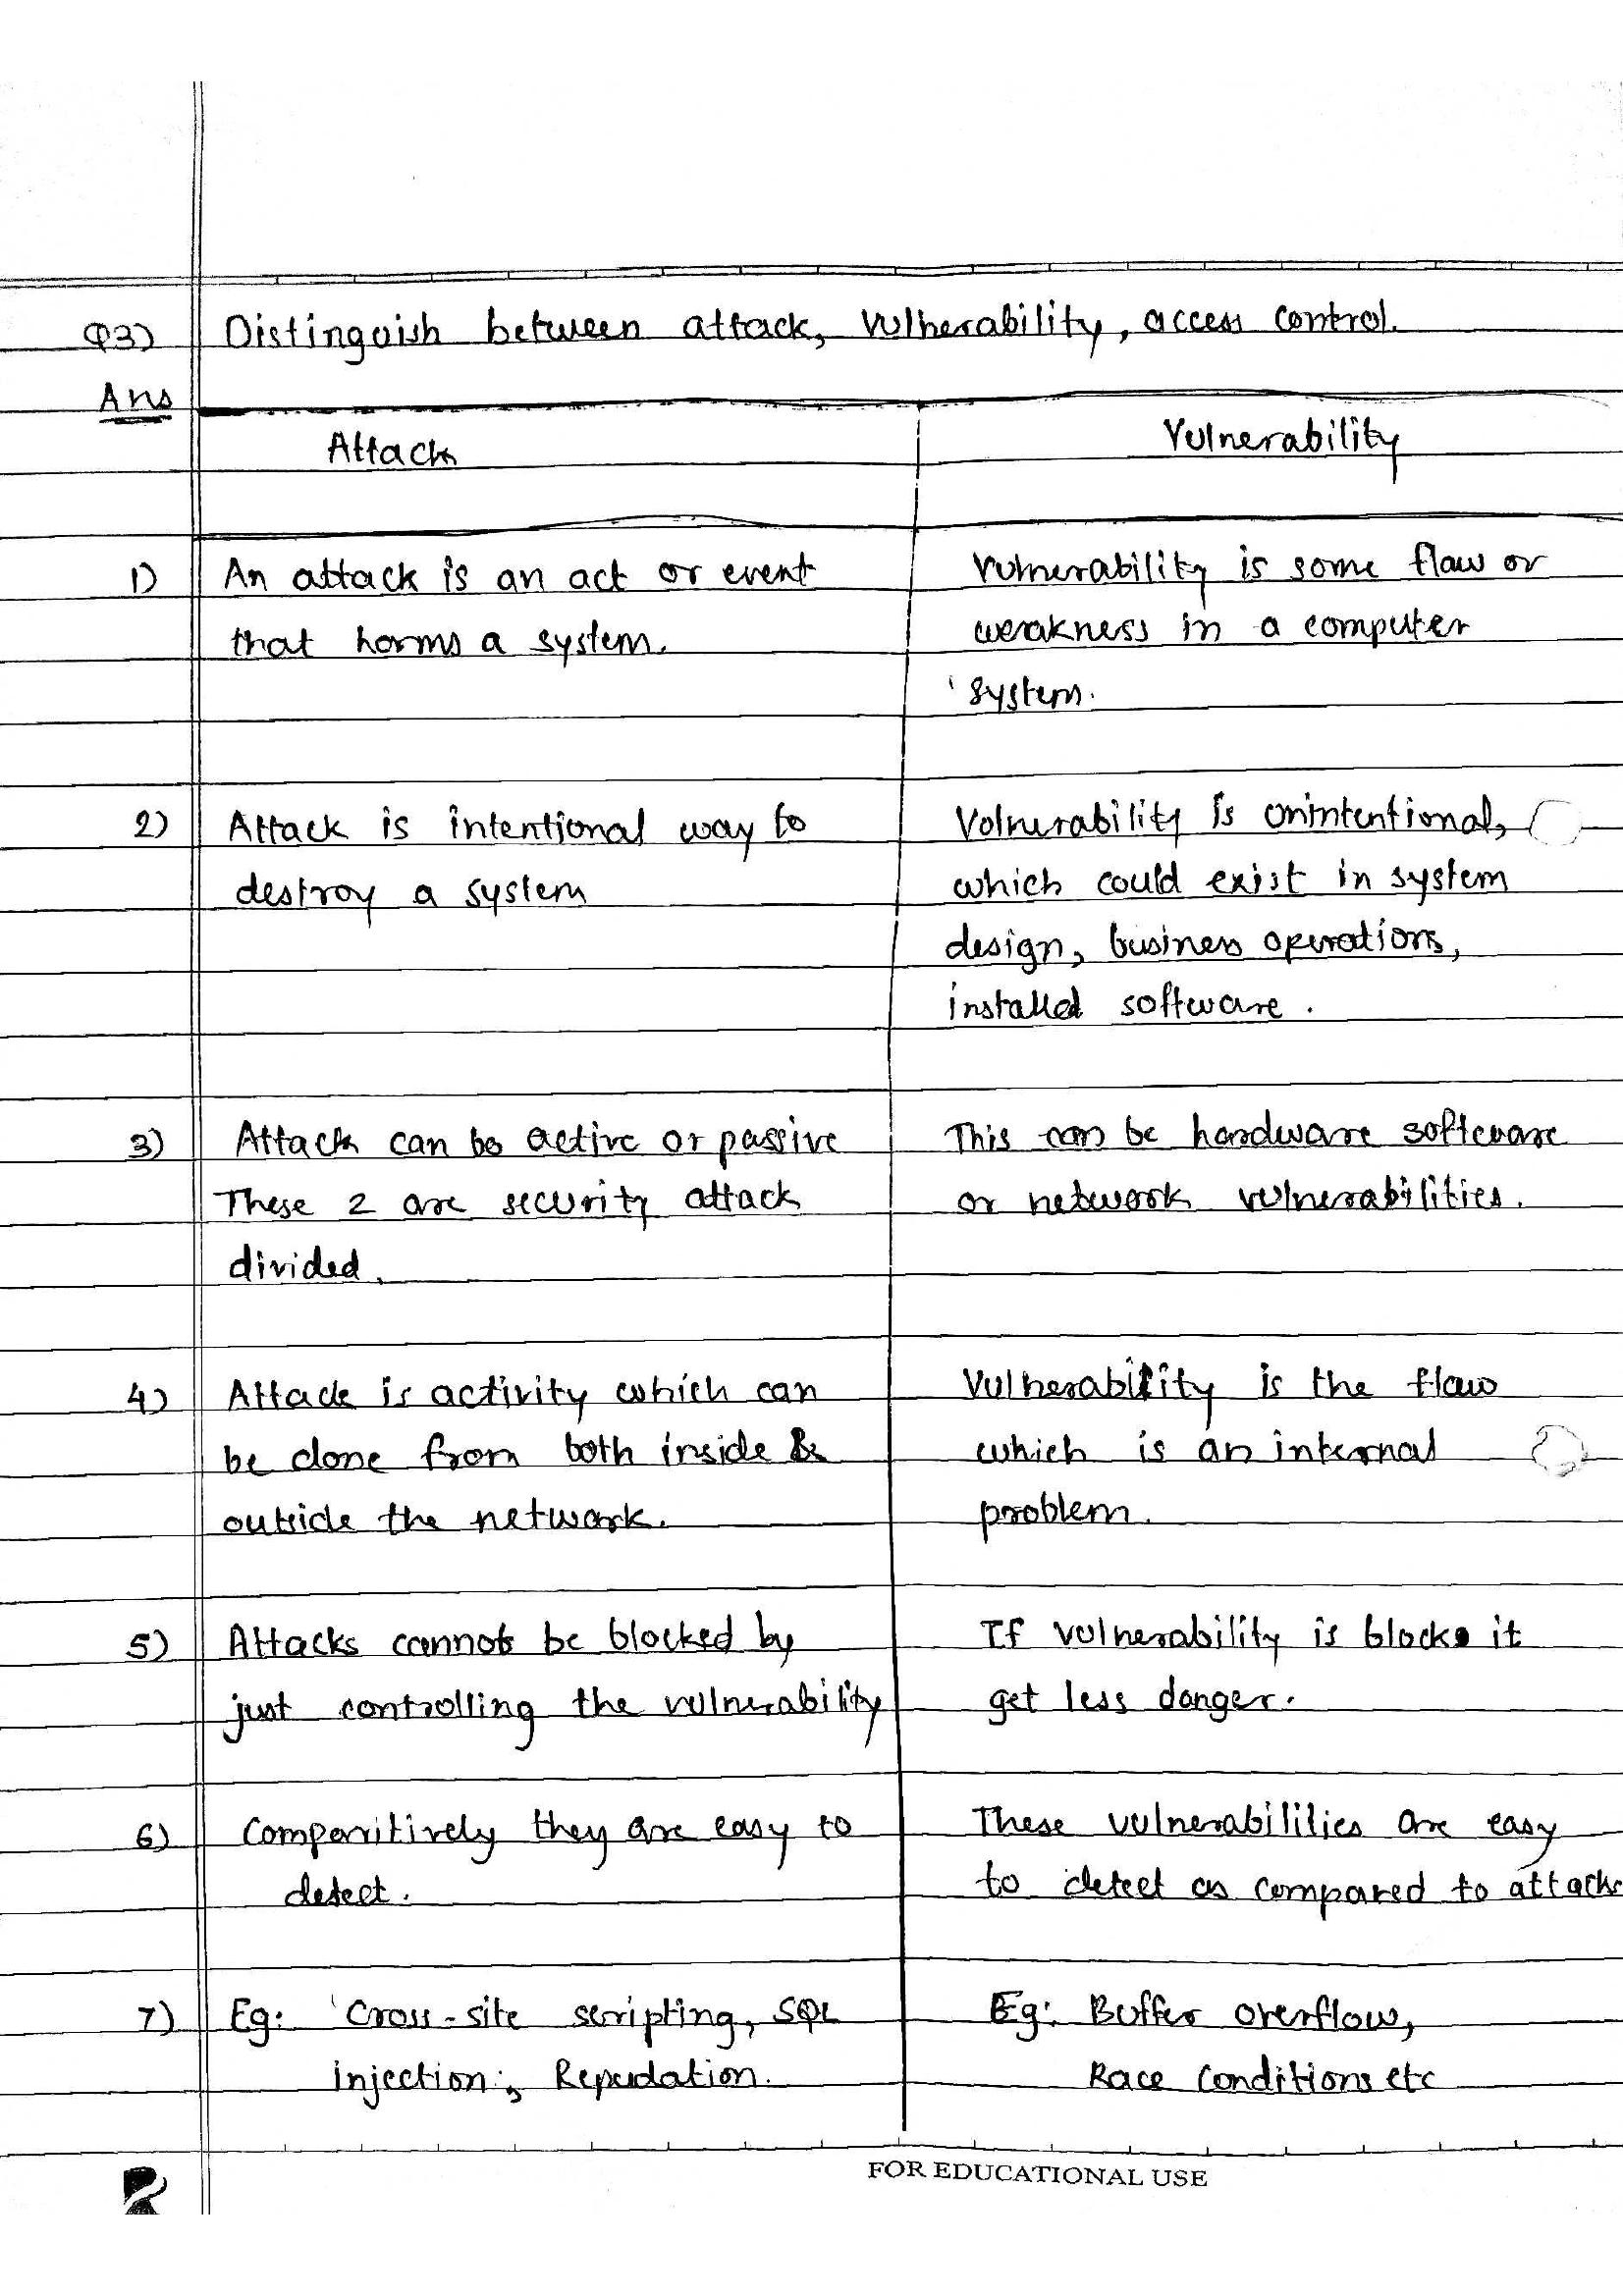 Q3) Distinguish between attack, vulnerability, access control.
Ans
Attack
Vulnerability
1) An attack is an act or event
that harms a system.
Vulnerability is some flaw or
weakness in a computer
system.
2) Attack is intentional way to
destroy a system
Vulnerability is unintentional,
which could exist in system
design, business operations,
installed software.
3) Attack can be active or passive
These 2 are security attack
divided.
This can be hardware software
or network vulnerabilities.
4) Attack is activity which can
be done from both inside &
outside the network.
Vulnerability is the flaw
which is an internal
problem.
5) Attacks cannot be blocked by
just controlling the vulnerability
If vulnerability is blocks it
get less danger.
6) Comparitively they are easy to
detect.
These vulnerabililies are easy
to detect as compared to attacks
7) Eg: Cross-site scripting, SQL
injection, Repudation.
Eg: Buffer overflow,
Race Conditions etc
FOR EDUCATIONAL USE